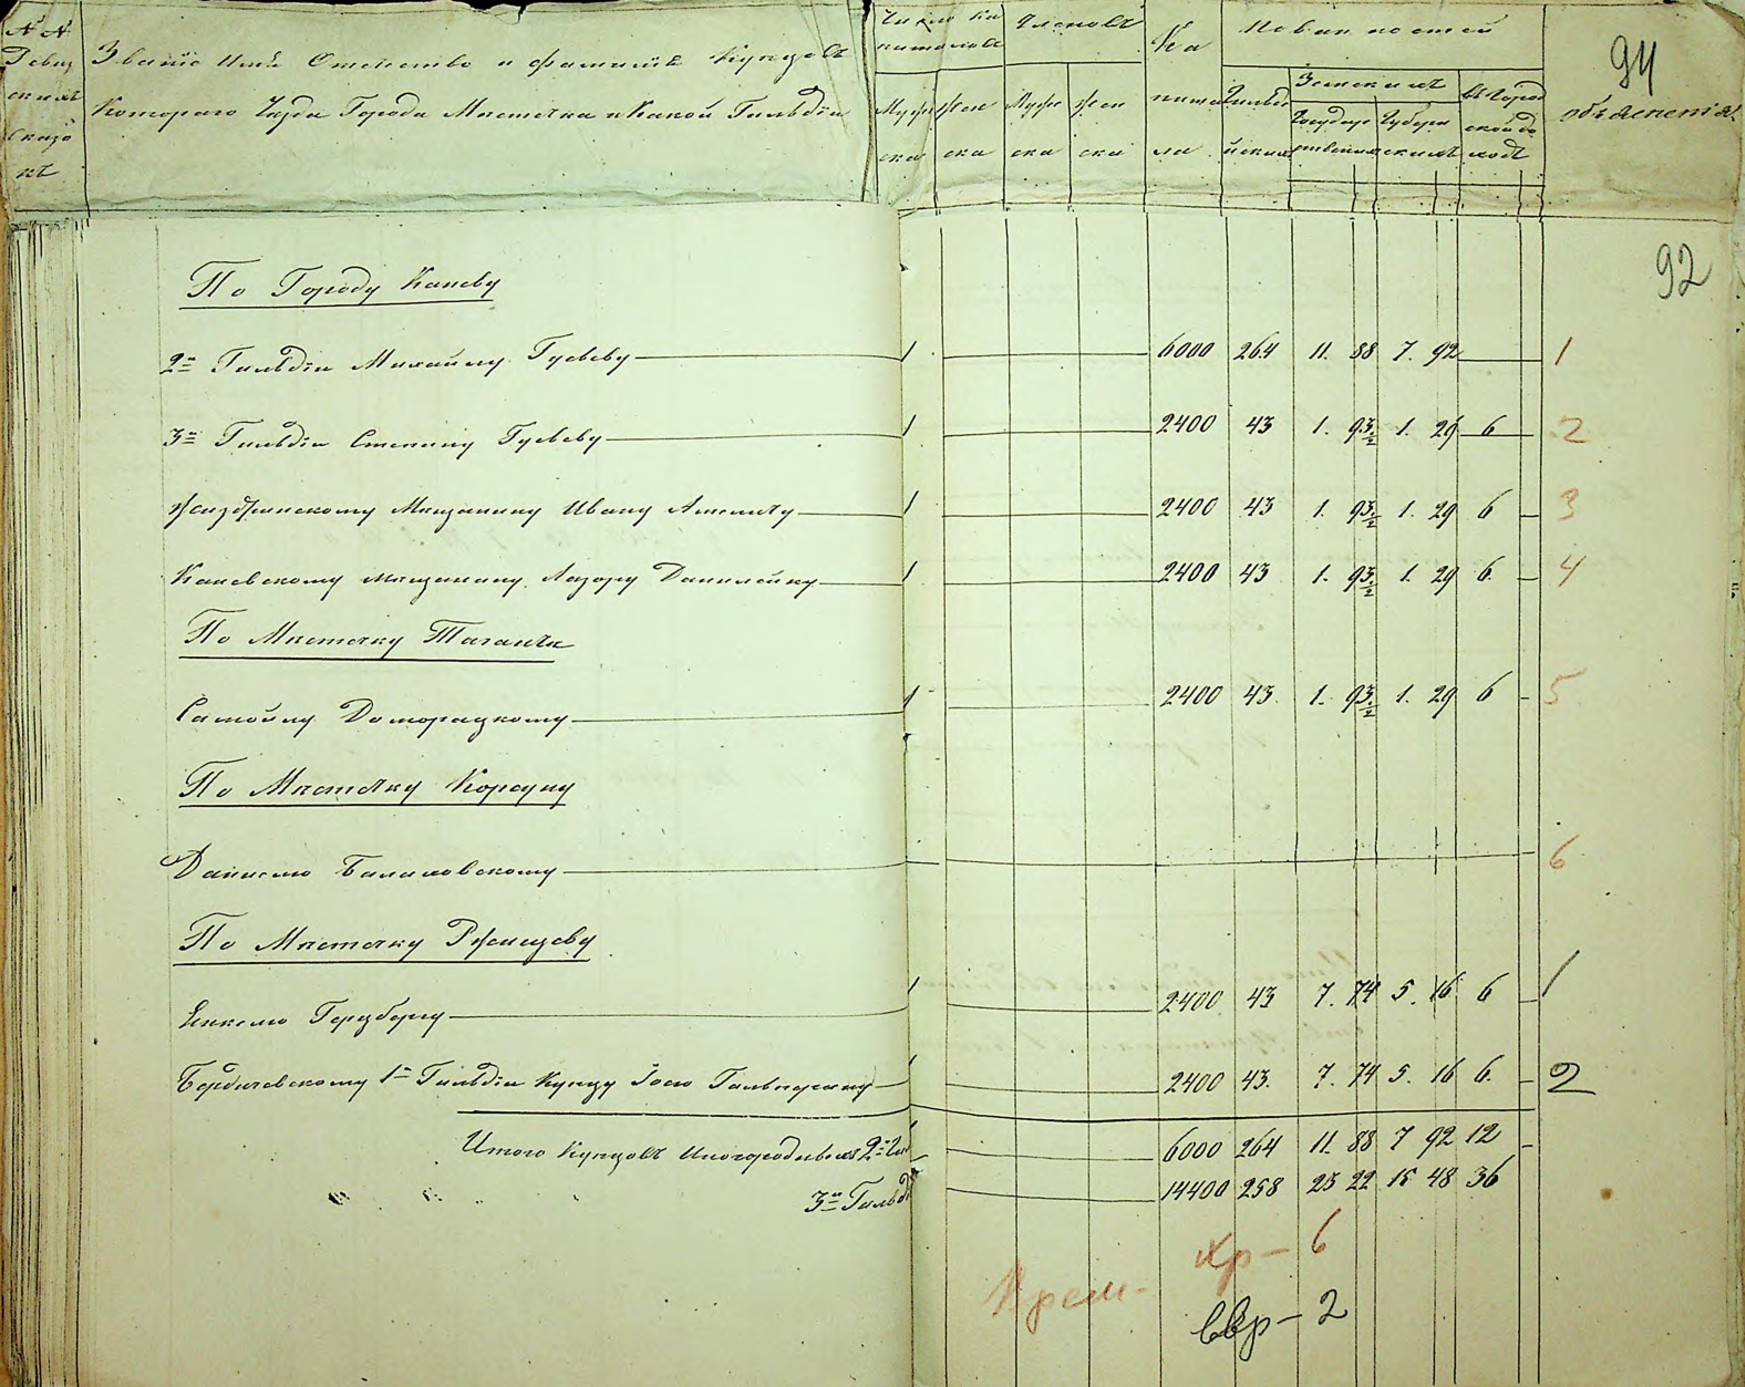 № №
Ревиз
скихъ
сказо
къ
Званіе Имя Отчество и фамилія Купцовъ
Котораго Уезда Города Мѣстечка и Какой Гильдіи
Число Ка
питаловъ
Членовъ
Ка
пита
ли
Мужс
ска
Жен
ска
Мужс
ска
Жен
ска
Повинностей
Гильдей
ских
Земскихъ
Государ
ственных
Губерн
скихъ
въ Город
ской до
ходъ
94
объясненія
92
По Городу Каневу
2й Гильдіи Михайлу Гусеву 1 6000 264 11. 88 7. 92 1
3й Гильдіи Степану Гусеву 1 2400 43 1. 93½ 1. 29 6 2
Жиздринскому Мещанину Ивану 1 2400 43 1. 93½ 1. 29 6 3
Каневскому мещанину Лазору Данилейку 1 2400 43 1. 93½ 1. 29 6 4
По Местечку Таганче
Самойлу Доморацкому 1 2400 43 1. 93½ 1. 29 6 5
По Местечку Корсуну
Данилю Балаховскому 6
По Местечку Ржищеву
Герзбергу 1 2400 43 7. 74 5. 16 6 1
Бердичевскому 1й Гильдіи Купцу Іосю Гальперину 1 2400 43. 7. 74 5. 16 6. 2
Итого Купцовъ Иногородныхъ 2й Гил 6000 264 11. 88 7 92 12
" " 3й Гильд 14400 258 23 22 15 48 36
Хр — 6
Врем
Евр — 2